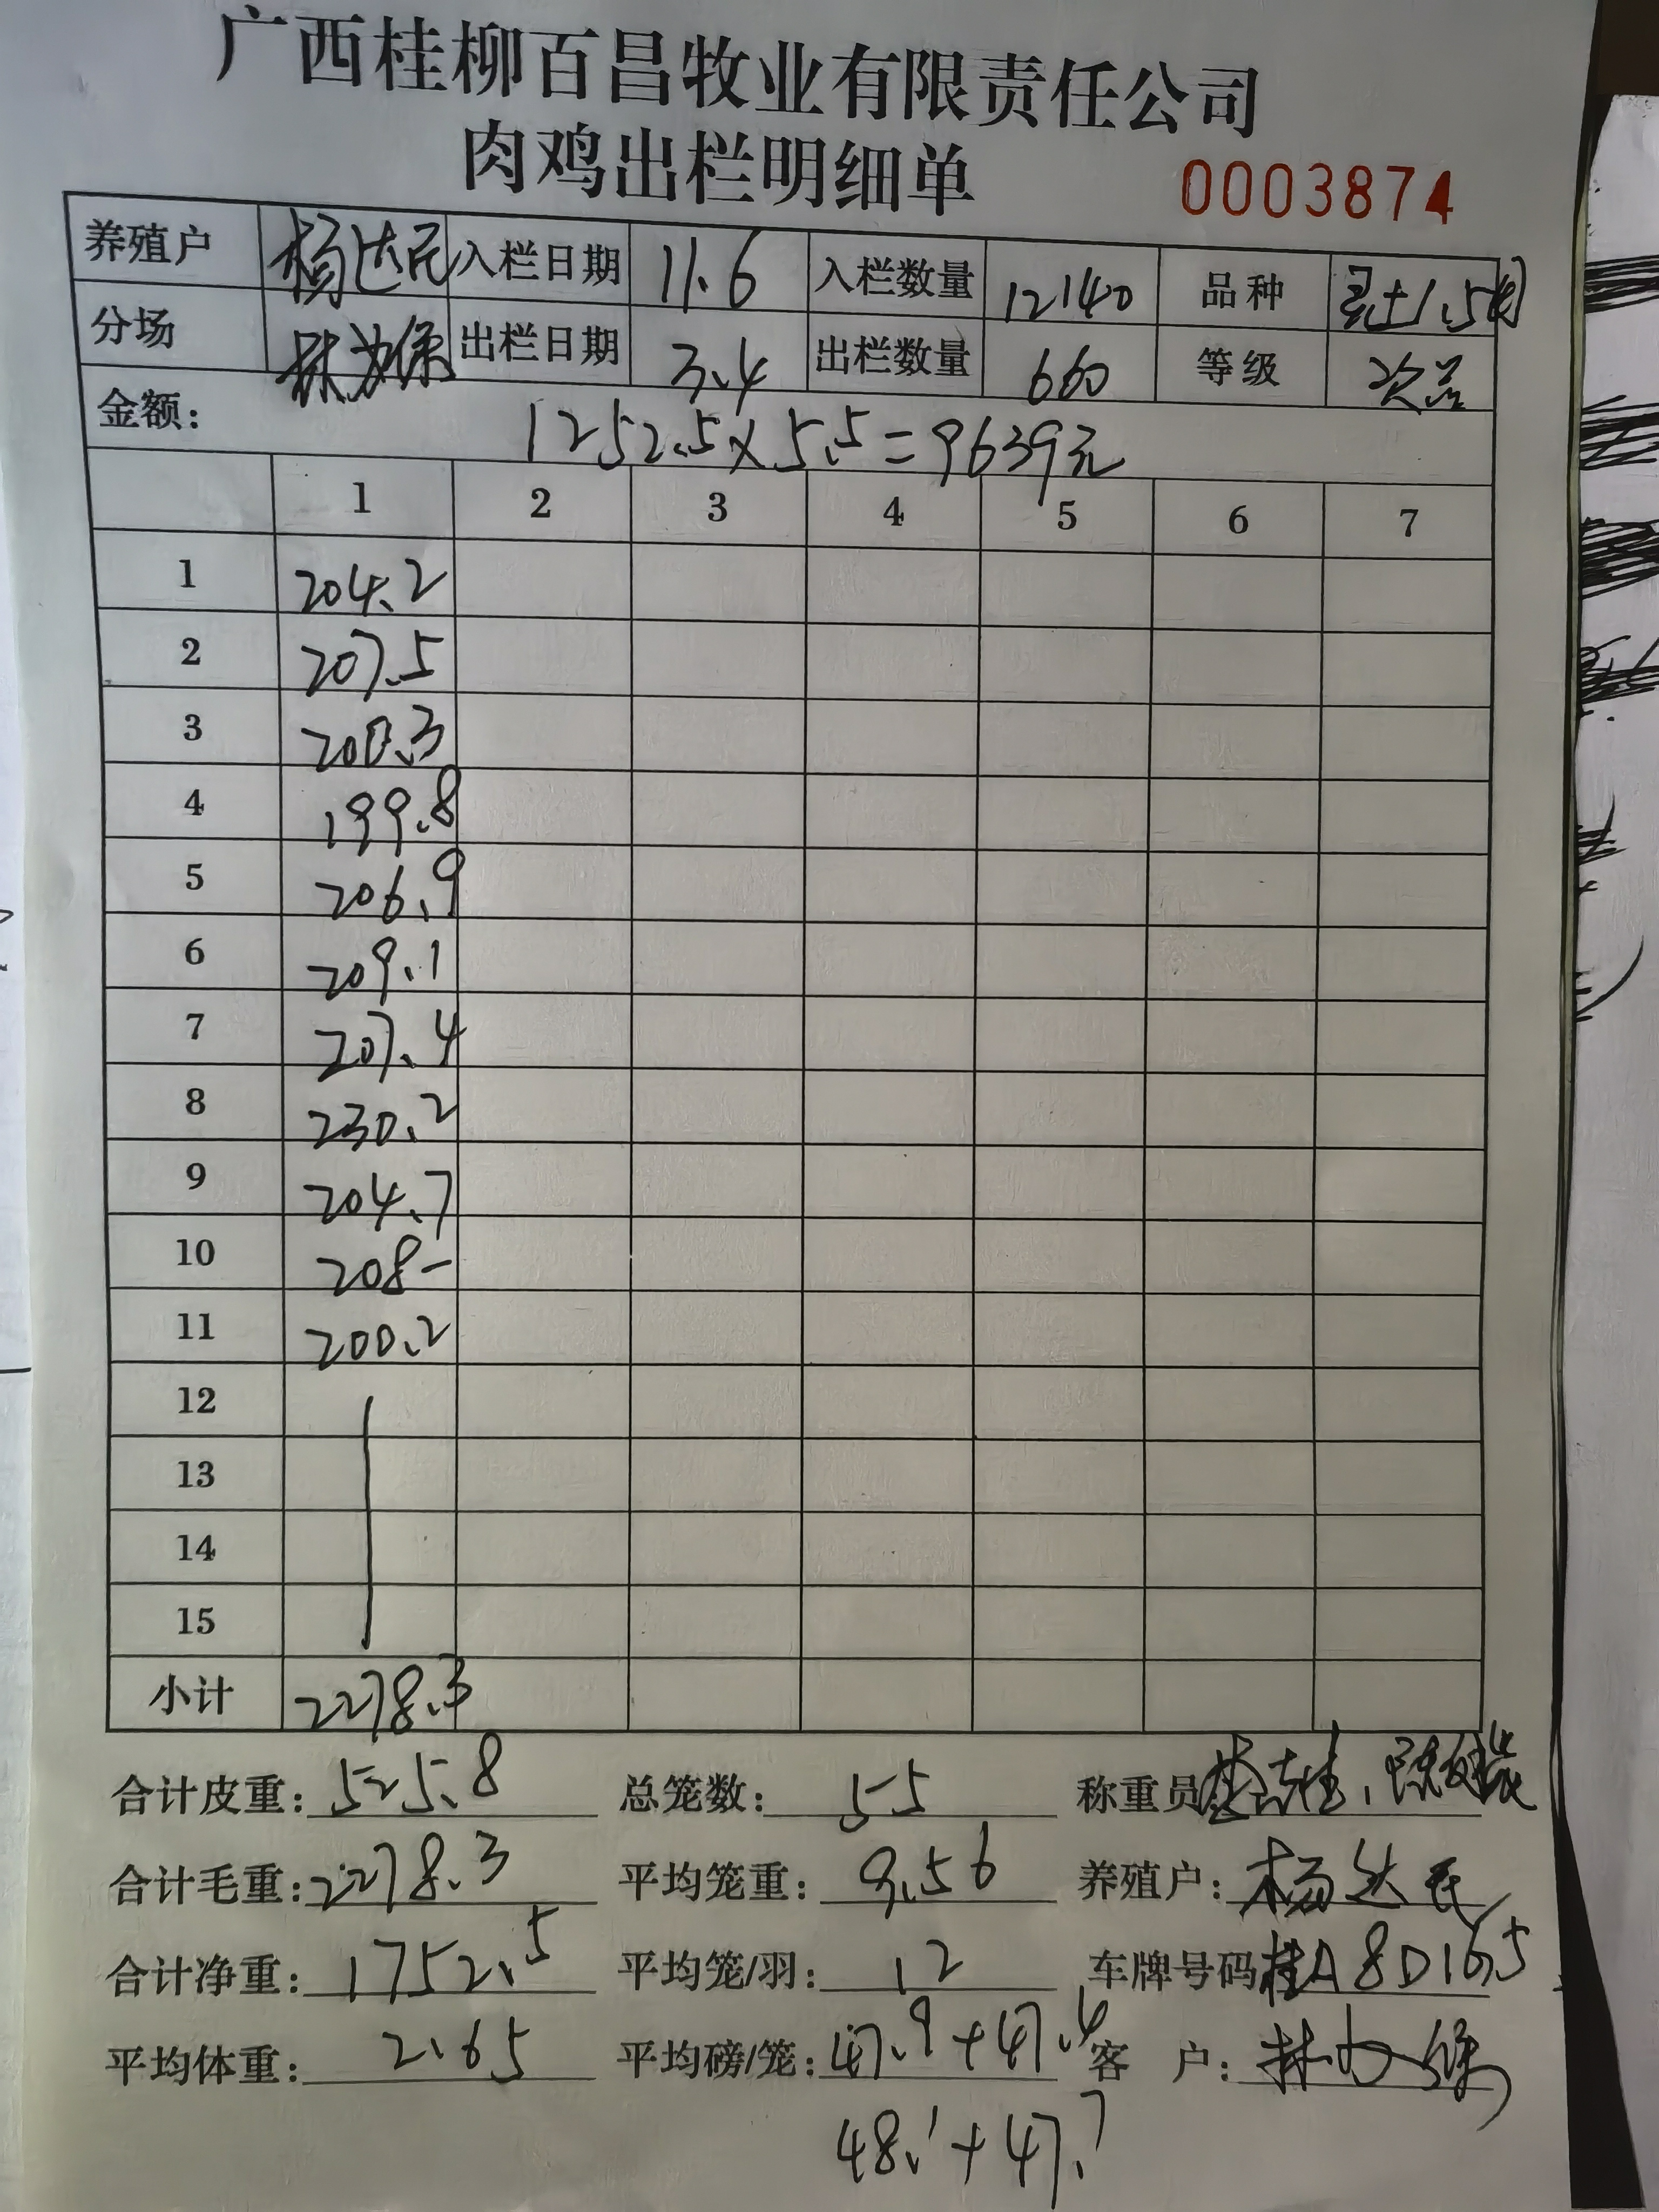 广西桂柳百昌牧业有限责任公司
肉鸡出栏明细单 0003874
养殖户 杨达民 入栏日期 11.6 入栏数量 12140 品种 土1.5
分场 出栏日期 3.4 出栏数量 660 等级 次品
金额: 1252.5×5.5=9639元
1 2 3 4 5 6 7
1 204.2
2 207.5
3 200.3
4 199.8
5 206.9
6 209.1
7 207.4
8 230.2
9 204.7
10 208-
11 200.2
12
13
14
15
小计 2278.3
合计皮重: 525.8 总笼数: 55 称重员
合计毛重: 2278.3 平均笼重: 9.56 养殖户: 杨达民
合计净重: 1752.5 平均笼/羽: 12 车牌号码 桂A8D165
平均体重: 2.65 平均磅/笼: 47.9+47.4 客 户: 林
48.1+47.7